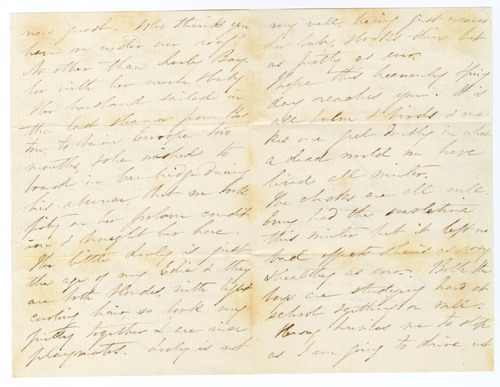 new guest. Who thinks you
have me under our roof?
No other than
her with her nurse & baby.
Her husband sailed in
the last steamer from Bos
ton, to be in Europe two
months, & she wished to
board in Cambridge during
his absence, that we took
pity on her forlorn condit
ion & brought her here.
Her little is just
the age of my Edie & they
are both blondes, with light
curling hair so look very
pretty together & are nice
playmates. is not
very well, having just weaned
her baby, & looks thin but
as pretty as ever.
I hope this heavenly spring
day reaches you. It is
all & birds & ma
kes me feel in what
a dead world we have
lived all winter.
The chicks are all well.
Erny had the scarletina
this winter but it left no
bad effects & he is as rosy
& healthy as ever. Both the
boys are studying hard at
school & getting on well.
Harry hurries me to stop
as I am going to drive out